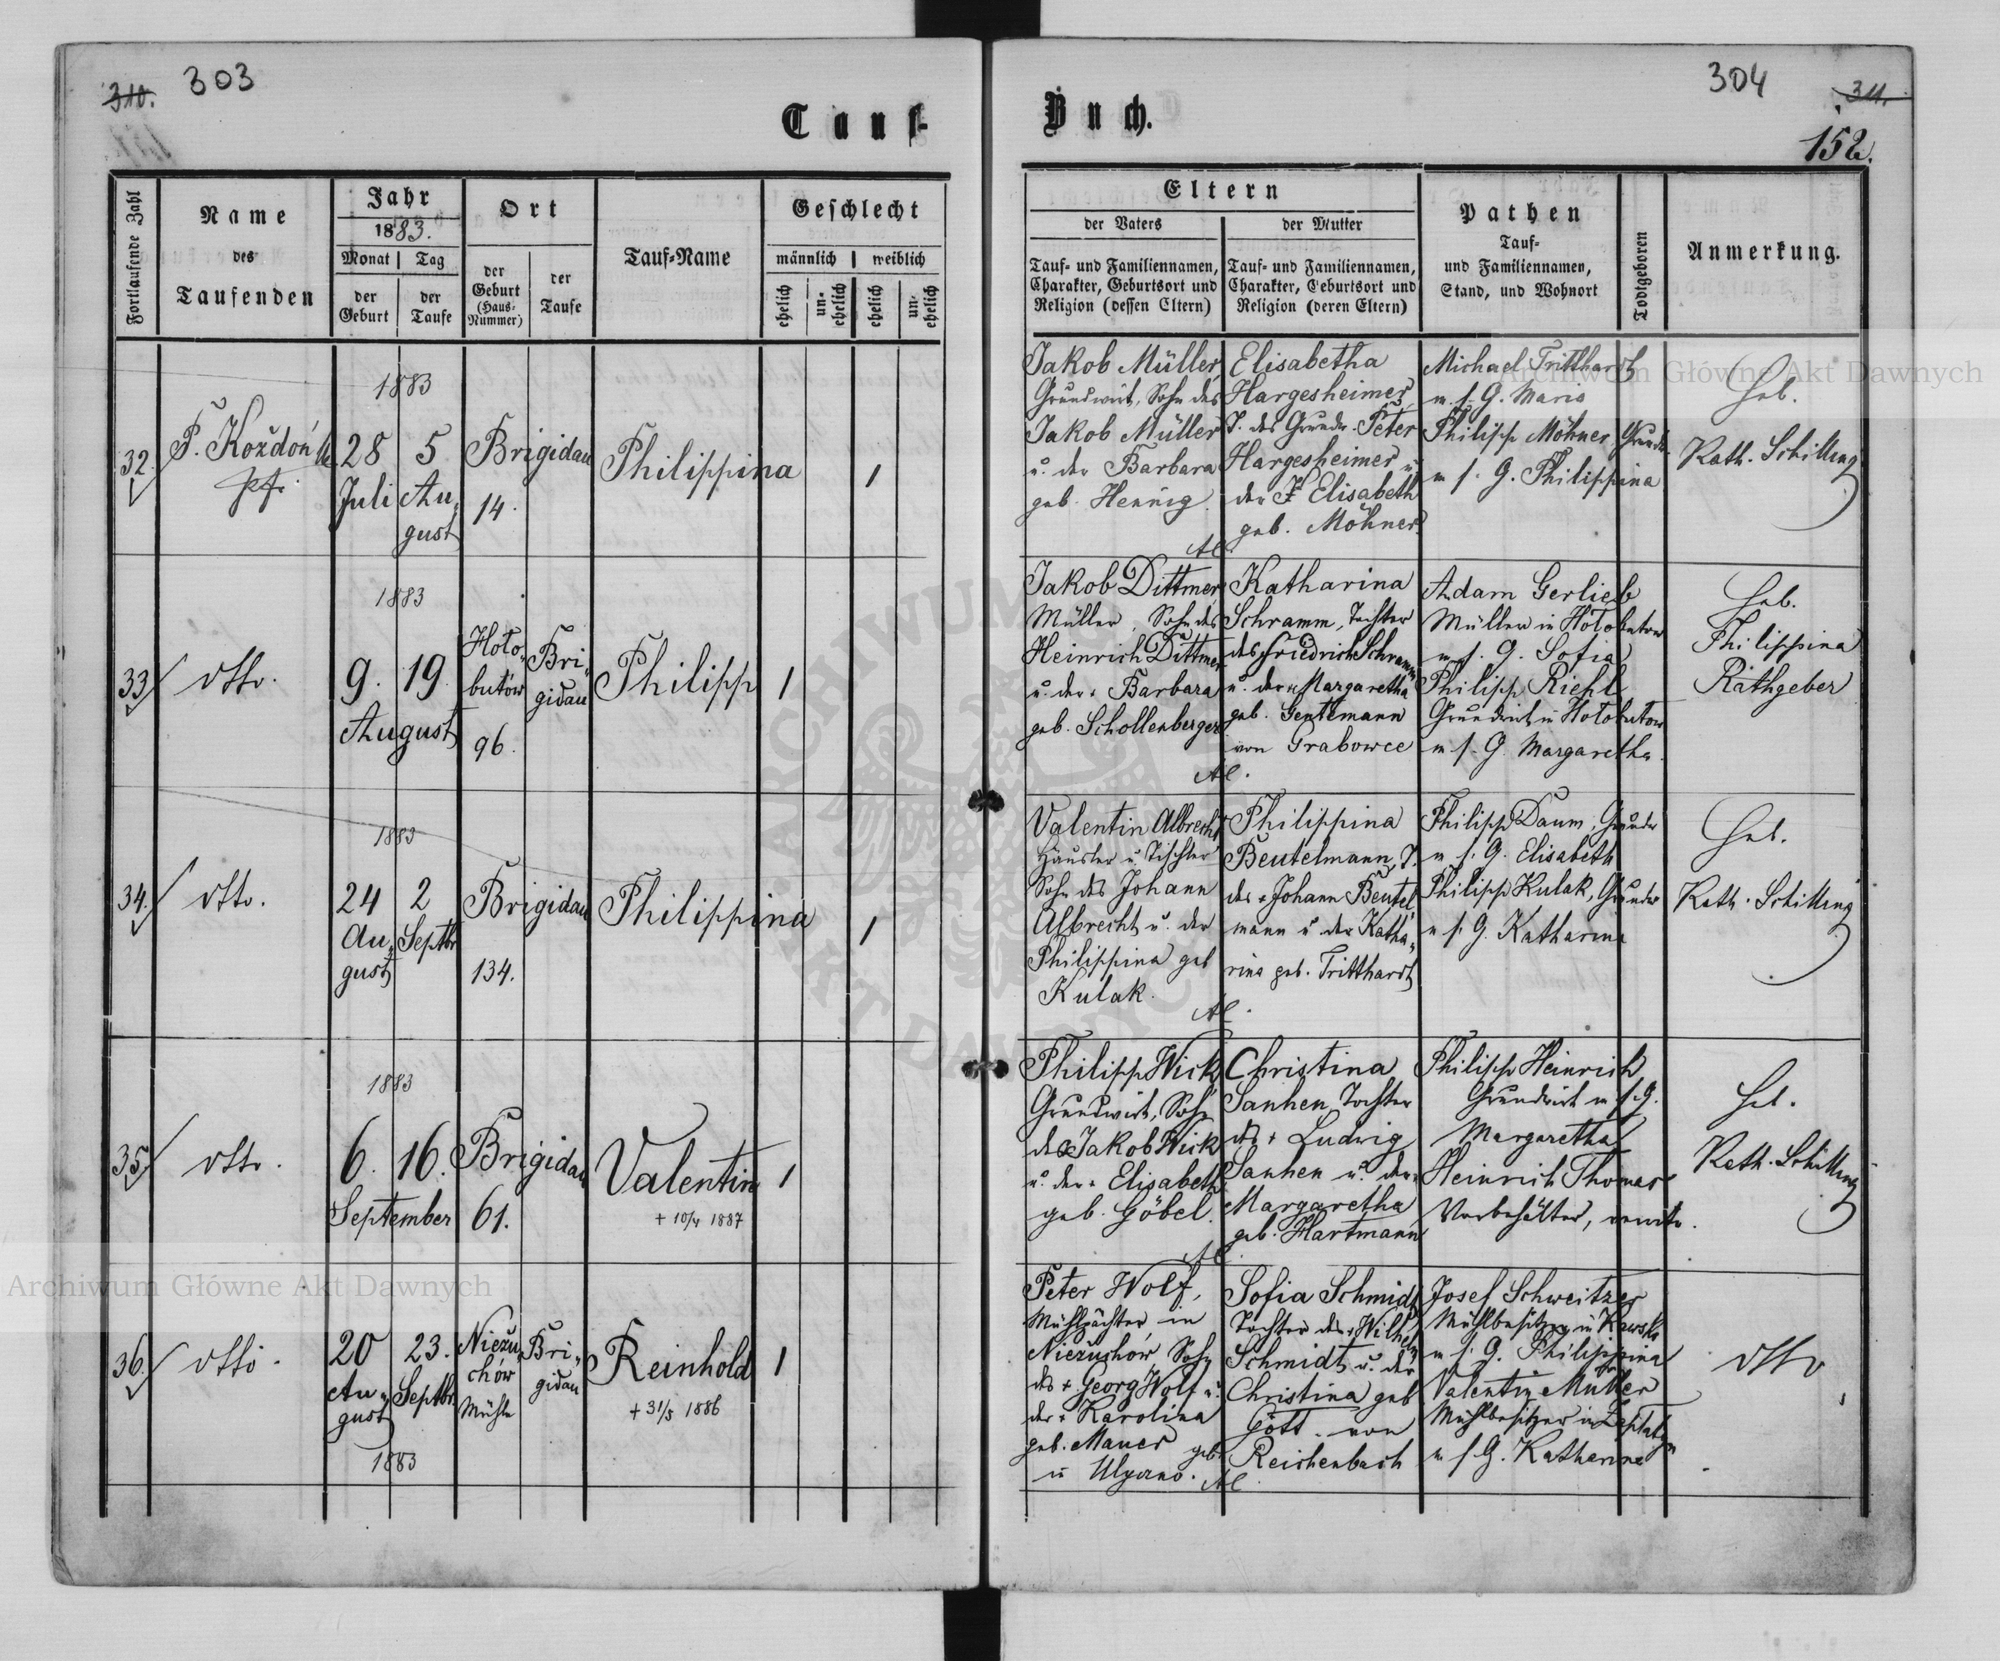 310.
303
Tauf-
Buch.
304
311.
152.
Fortlaufende Zahl
Name
des
Taufenden
Jahr
1883.
Monat
Tag
der
Geburt
der
Taufe
Ort
der
Geburt
(Haus-
Nummer)
der
Taufe
Tauf-Name
Geschlecht
männlich
weiblich
ehelich
un-
ehelich
ehelich
un-
ehelich
Eltern
der Vaters
der Mutter
Tauf- und Familiennamen,
Charakter, Geburtsort und
Religion (dessen Eltern)
Tauf- und Familiennamen,
Charakter, Geburtsort und
Religion (deren Eltern)
Pathen
Tauf-
und Familiennamen,
Stand, und Wohnort
Todtgeboren
Anmerkung.
32.
P. Koždoń
pf.
1883
28
Juli
5
Au-
gust
Brigidau
14.
Philippina
1
Jakob Müller
Grundwirt, Sohn des
Jakob Müller
u. der Barbara
geb. Hennig.
Al.
Elisabetha
Hargesheimer,
T. des Grundw. Peter
Hargesheimer u
der † Elisabeth
geb. Möhner.
Michael Tritthardt
m. s. G. Maria
Philipp Möhner, Grundw.
m s. G. Philippina
Heb.
Kath. Schilling
33.
dtto.
1883
9.
19.
August
Holo-
butów
96.
Bri-
gidau
Philipp
1
Jakob Dittmer
Müller, Sohn des
Heinrich Dittmer
u. der + Barbara
geb. Schollenberger
Al.
Katharina
Schramm, Tochter
des Friedrich Schramm
u. der + Margaretha
geb. Gentemann
von Grabowce
Adam Gerlieb
Müller in Holobutow
m. s. G. Sofia
Philipp Riehl
Grundwirt in Holobutow
m s. G. Margaretha.
Heb.
Philippina
Rathgeber
34.
dtto.
1883
24
Au-
gust
2
Septbr
Brigidau
134.
Philippina
1
Valentin Albrecht
Häusler u. Tischler
Sohn des Johann
Albrecht u. der
Philippina geb
Kulak.
Al.
Philippina
Beutelmann, T.
des + Johann Beutel-
mann u. der Katha-
rina geb. Tritthardt
Philipp Daum, Grundw
m s. G. Elisabeth
Philipp Kulak, Grundw
m s. G. Katharina
Heb.
Kath. Schilling
35.
dtto.
1883
6.
16.
September
Brigidau
61.
Valentin
+ 10/4 1887
1
Philipp Wick
Grundwirt, Sohn
des Jakob Wick
u. der + Elisabeth
geb. Göbel.
Al.
Christina
Sanhen, Tochter
des + Ludwig
Sanhen u. der +
Margaretha
geb. Hartmann
Philipp Heinrich
Grundwirt m s. G.
Margaretha
Heinrich Thomas
Vorbehälter,
Heb.
Kath. Schilling
36.
dtto.
20
Au-
gust
23.
Septbr.
1883
Niezu-
chów
Mühle
Bri-
gidau
Reinhold
+ 31/5 1886
1
Peter Wolf,
Mühlpächter in
Niezuchów Sohn
des + Georg Wolf u.
der + Karolina
geb. Mauer geb.
in
Al.
Sofia Schmidt
Tochter des + Wilhelm
Schmidt u. der
Christina geb
Gött von
Reichenbach
Josef Schweitzer
Mühlbesitzer in Kawsko
m s. G. Philippina
Valentin Müller
Mühlbesitzer in
m s G. Katharina
dtto
Archiwum Główne Akt Dawnych
Archiwum Główne Akt Dawnych
ARCHIWUM
AKT DAWNYCH